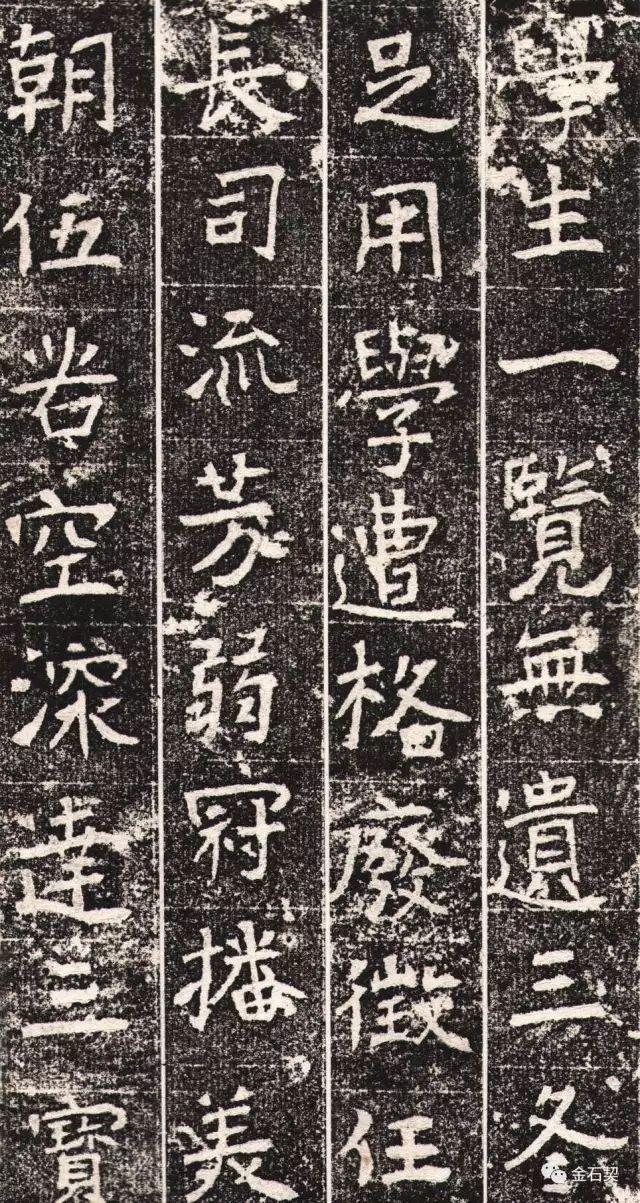 學生一覽無遺三冬
足用學遭格廢徵任
長司流芳弱冠播美
朝伍若空深達三寶
金石契